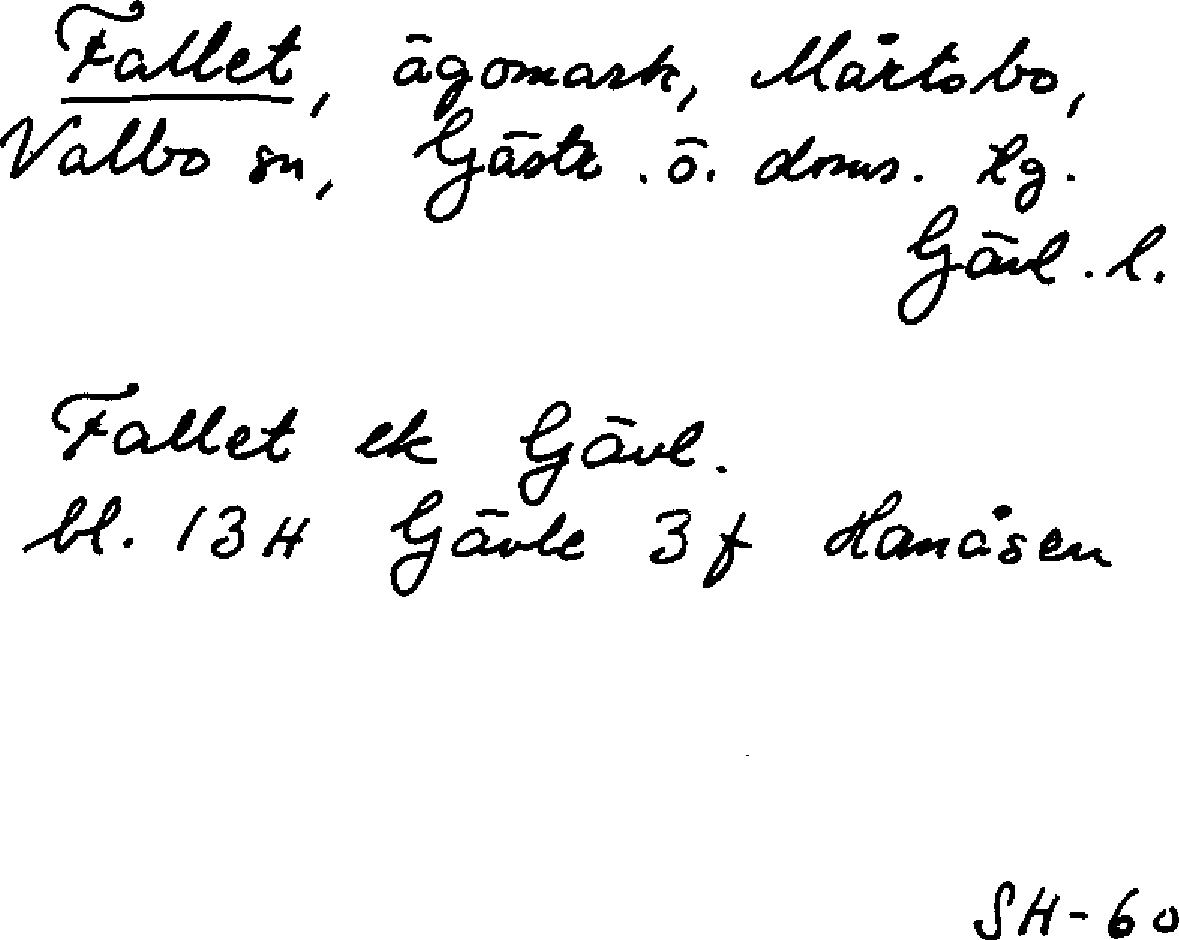 Fallet, ägomark, Mårtsbo,
Valbo sn, Gästr. ö. doms. lg.
Gävl. l.
Fallet ek Gävl.
bl. 13 H Gävle 3 f Hanåsen
SH-60